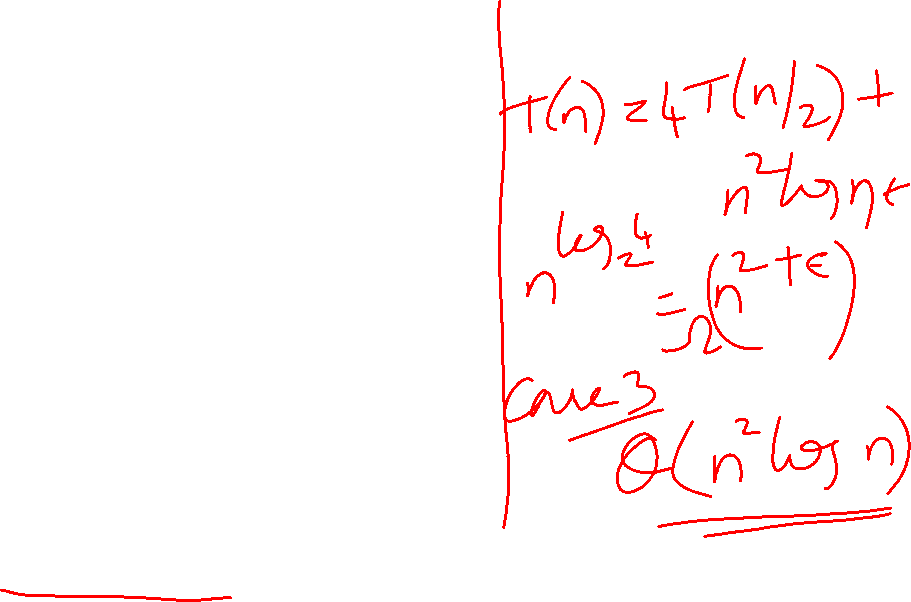 T(n) = 4T(n/2) +
n² log n
n^{log_2 4} = Ω(n^{2+ϵ})
Case 3
Θ(n² log n)